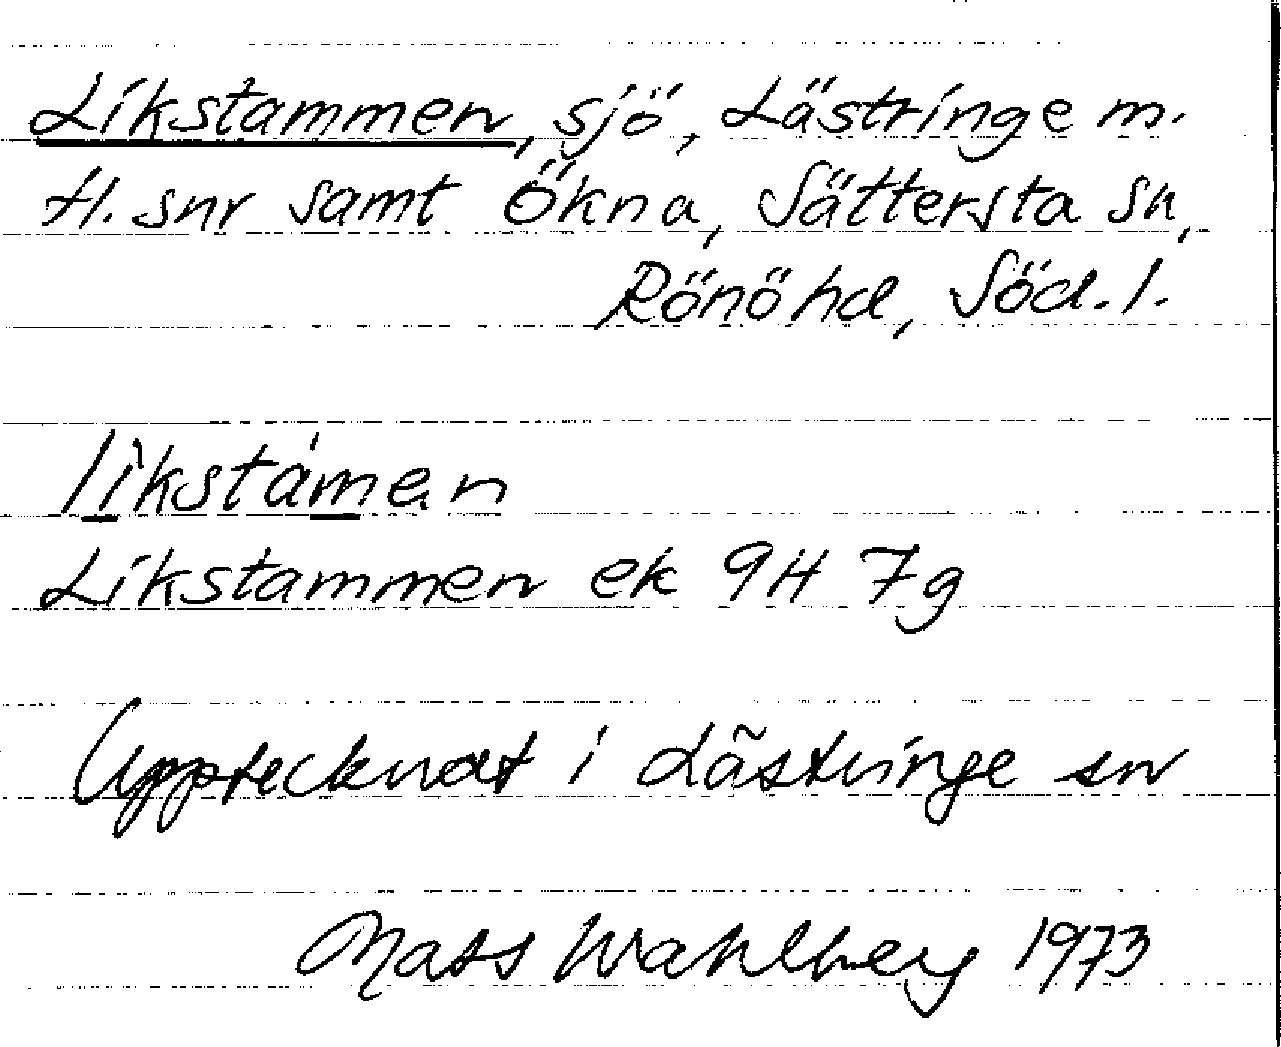 Likstammen, sjö, Lästringe m.
fl. snr samt Ökna, Sättersta sn,
Rönöhd, Söd. l.
lìkstámen
Likstammen ek 9H 7g
Upptecknat i Lästringe sn
Mats Wahlberg 1973